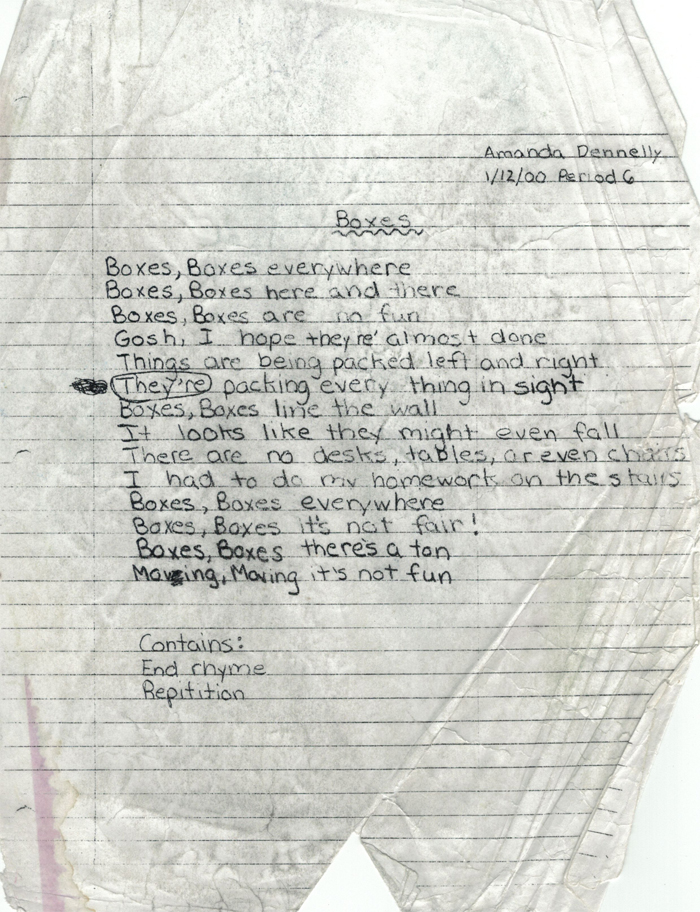 Amanda Dennelly
1/12/00 Period 6
Boxes
Boxes, Boxes everywhere
Boxes, Boxes here and there
Boxes, Boxes are no fun
Gosh, I hope they're' almost done
Things are being packed left and right
They're packing every thing in sight
Boxes, Boxes line the wall
It looks like they might even fall
There are no desks, tables, or even chairs
I had to do my homework on the stairs
Boxes, Boxes everywhere
Boxes, Boxes it's not fair!
Boxes, Boxes there's a ton
Moving, Moving it's not fun
Contains:
End rhyme
Repitition